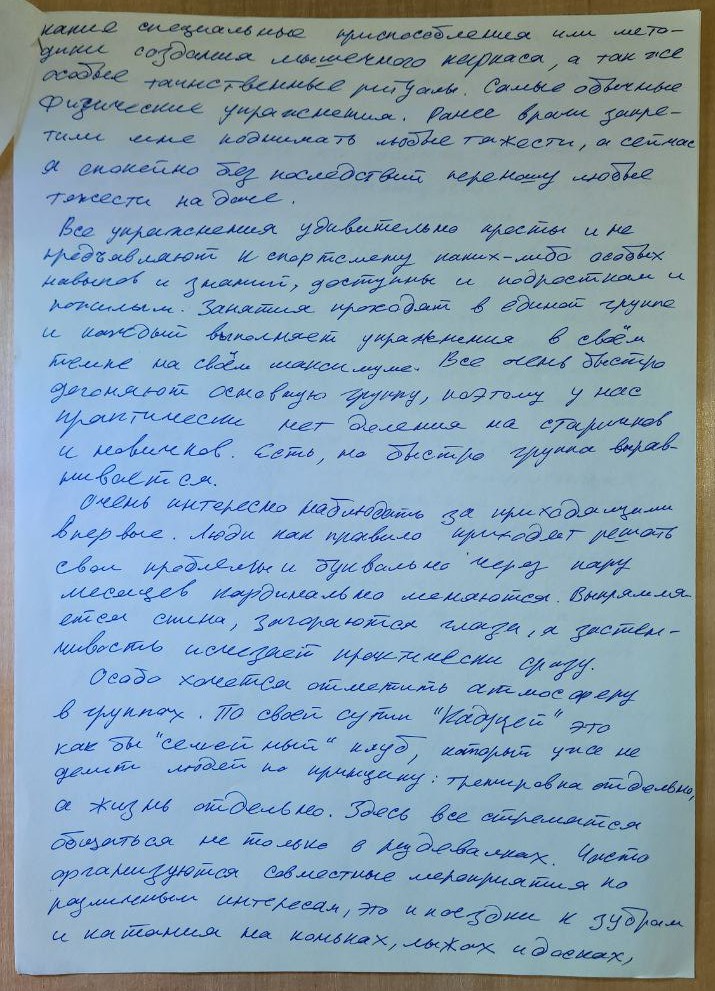 какие специальные приспособления или мето-
дики создания мышечного каркаса, а так же
особые таинственные ритуалы. Самые обычные
физические упражнения. Ранее врачи запре-
тили мне поднимать любые тяжести, а сейчас
я спокойно без последствий переношу любые
тяжести на даче.
Все упражнения удивительно просты и не
предъявляют к спортсмену каких-либо особых
навыков и знаний, доступны и подросткам и
пожилым. Занятия проходят в единой группе
и каждый выполняет упражнения в своём
темпе на своём максимуме. Все очень быстро
догоняют основную группу, поэтому у нас
практически нет деления на старичков
и новичков. Есть, но быстро группа вырав-
нивается.
Очень интересно наблюдать за приходящими
впервые. Люди как правило приходят решать
свои проблемы и буквально через пару
месяцев кардинально меняются. Выпрямля-
ется спина, загораются глаза, а застен-
чивость исчезает практически сразу.
Особо хочется отметить атмосферу
в группах. По своей сути "Кадуцей" это
как бы "семейный" клуб, который уже не
делит людей по принципу: тренировка отдельно,
а жизнь отдельно. Здесь все стремятся
общаться не только в раздевалках. Часто
организуются совместные мероприятия по
различным интересам, это и поездки к зубрам
и катания на коньках, лыжах и досках,